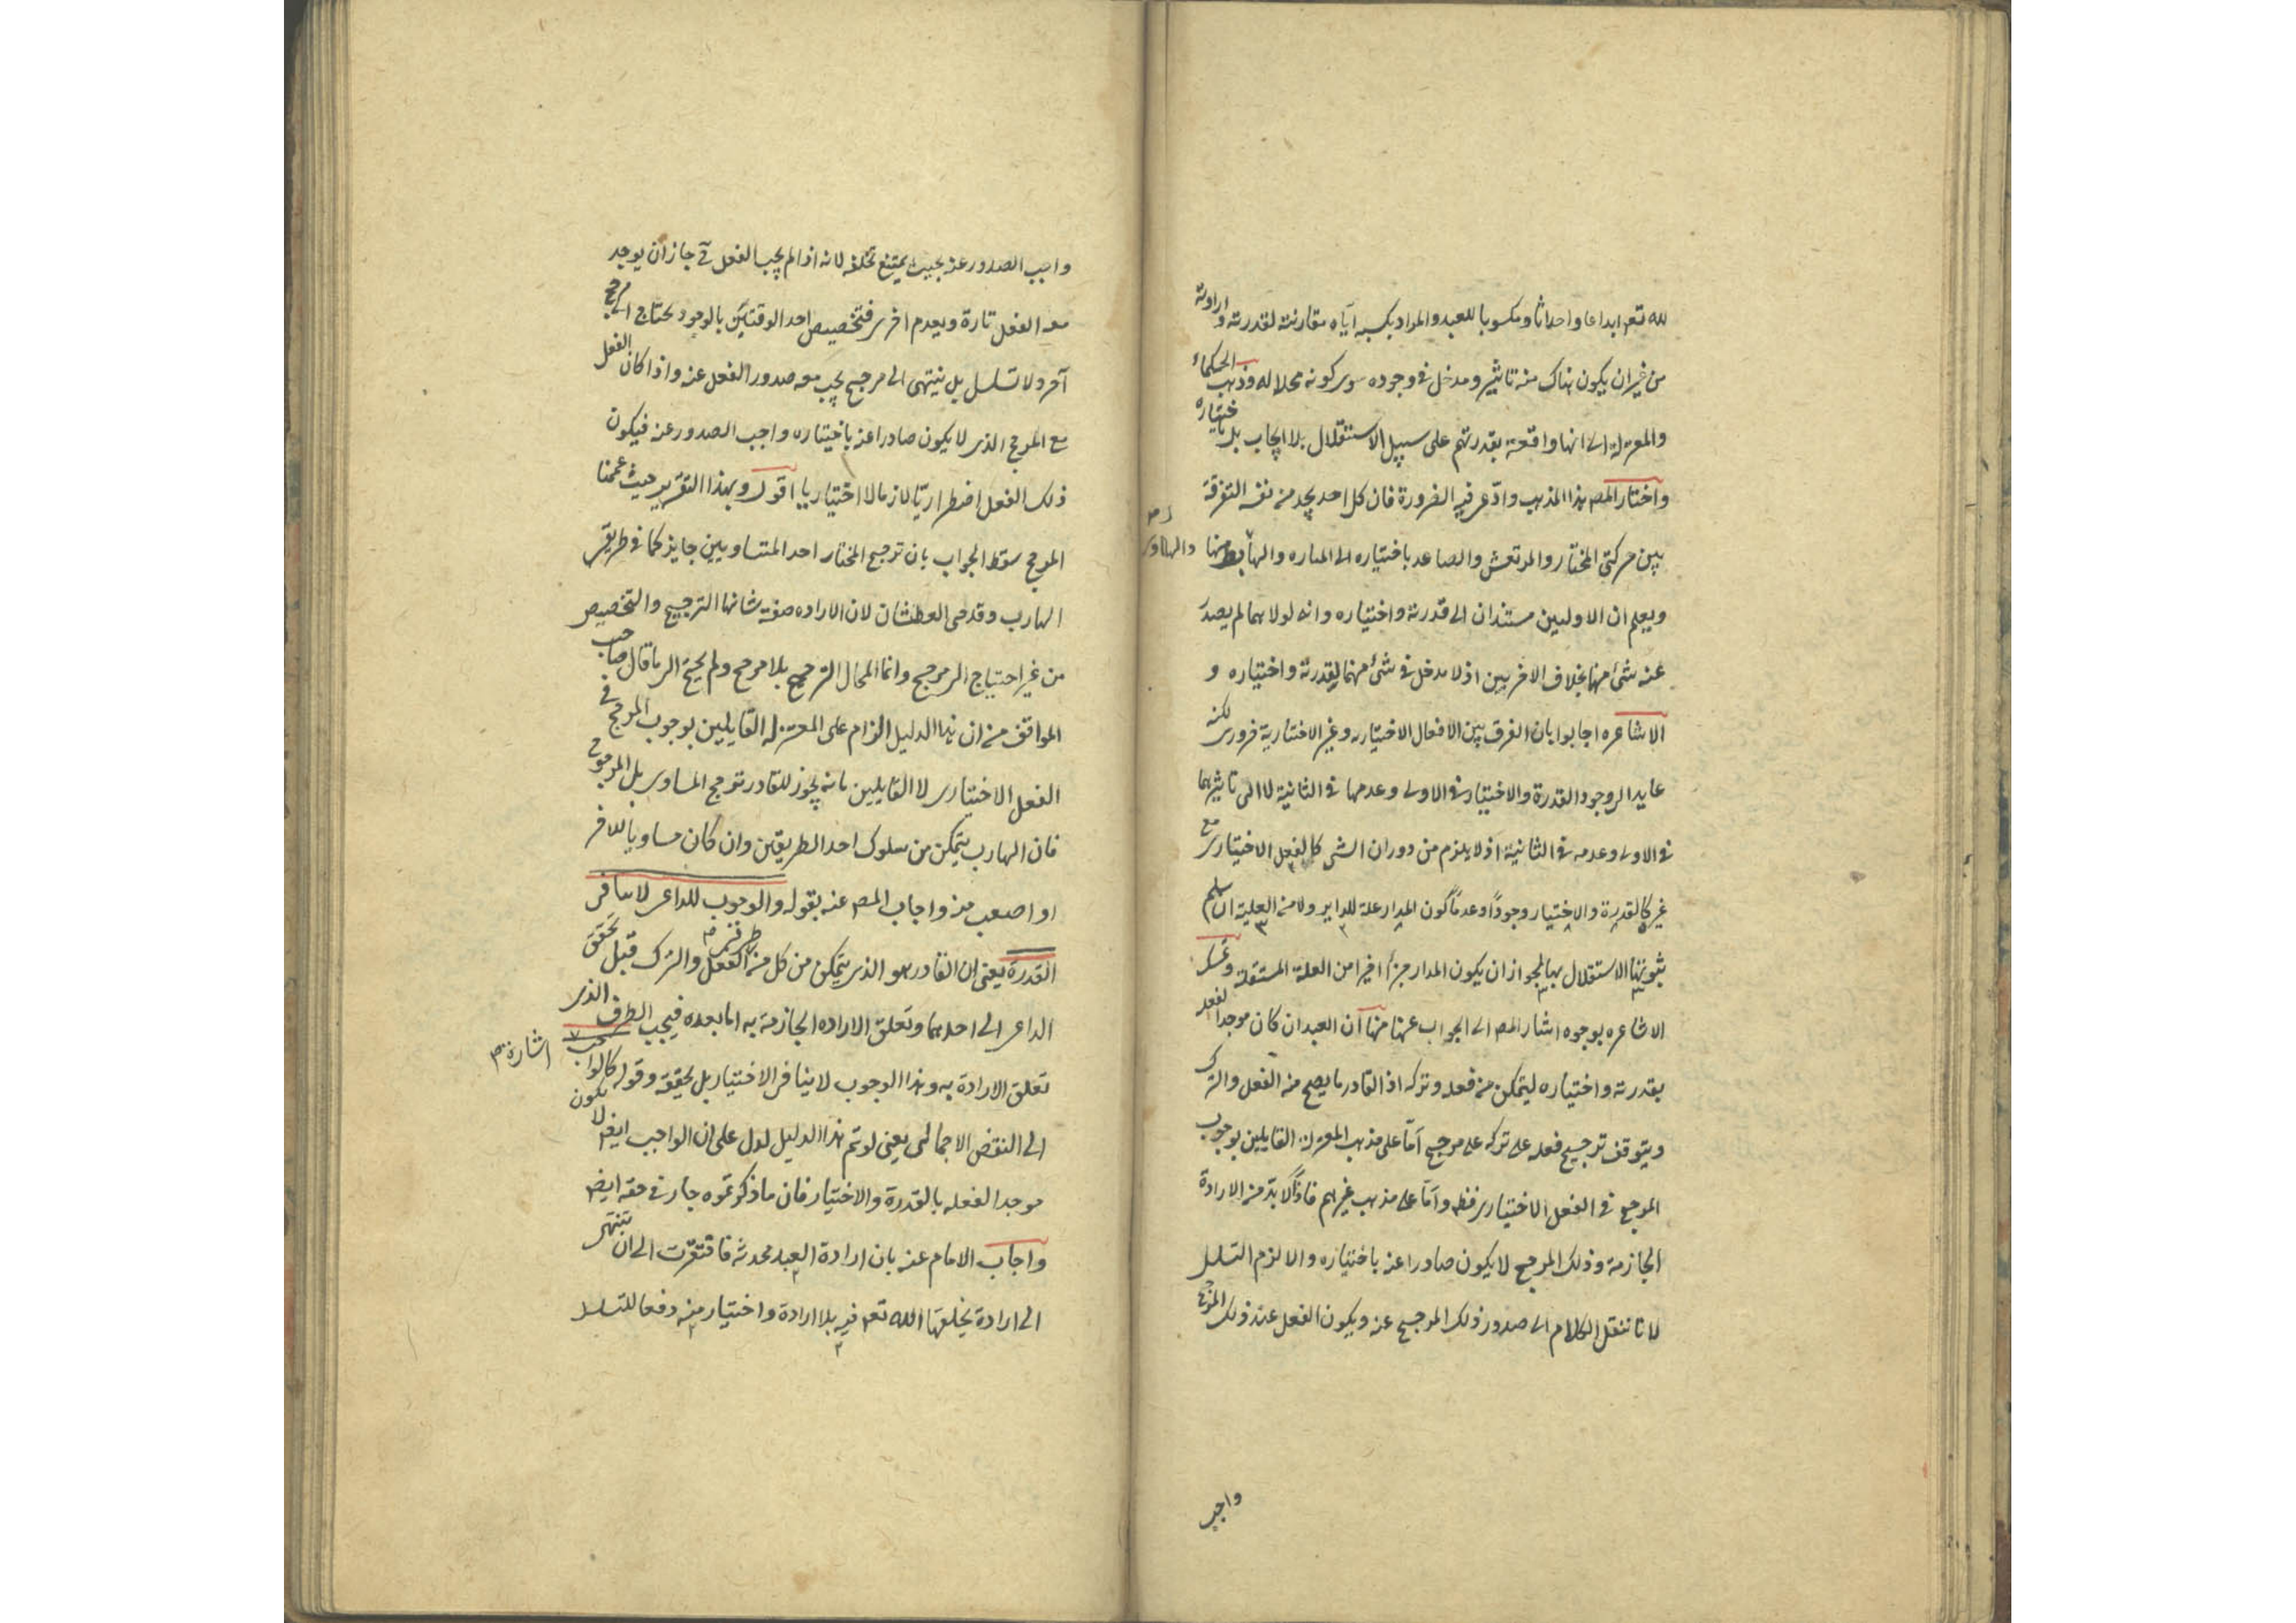 لله تعم ابداعا واحداثا ومكسوبا للعبد والمراد بكسبه اياه مقارنته لقدرته وارادته
من غير ان يكون هناك منه تاثير ومدخل في وجوده سوى كونه محلا له وذهب الحكماء
والمعتزلة الى انها واقعة بقدرتهم على سبيل الاستقلال بلا ايجاب بل باختياره
واختار المصـ هذا المذهب وادعى فيه الضرورة فان كل احد يجد من نفسه التفرقة
بين حركتى المختار والمرتعش والصاعد باختياره الى المناره والهابط منها
ويعلم ان الاوليين مستندان الى قدرته واختياره وانه لولاهما لم يصدر
عنه شئ منها بخلاف الاخريين اذ لا مدخل في شئ منهما لقدرته واختياره و
الاشاعره اجابوا بان الفرق بين الافعال الاختياريه وغير الاختيارية ضرورى لكنه
عايد الى وجود القدرة والاختيار في الاولى وعدمها في الثانية لا الى تاثيرهما
في الاولى وعدمه في الثانية اذ لا يلزم من دوران الشى كالفعل الاختيارى مع
غيره كالقدرة والاختيار وجودًا وعدمًا كون المدار علة للداير ولا من العلية ان سلم
ثبوتها الاستقلال بها لجواز ان يكون المدار جزأ اخيرا من العلة المستقلة وتمسك
الاشاعره بوجوه اشار المصـ الى الجواب عنها منها ان العبد ان كان موجدا لفعله
بقدرته واختياره ليتمكن من فعله وتركه اذ القادر ما يصح منه الفعل والترك
ويتوقف ترجيح فعله على تركه على مرجح امّا على مذهب المعتزلة القايلين بوجوب
المرجح في الفعل الاختيارى فظ وامّا على مذهب غيرهم فاذًا لا بدّ من الارادة
الجازمة وذلك المرجح لا يكون صادرا عنه باختياره والا لزم التسلسل
لانا ننقل الكلام الى صدور ذلك المرجح عنه ويكون الفعل عند ذلك المرجح
واجب
واجب الصدور عنه بحيث يمتنع تخلفه لانه اذا لم يجب الفعل ح جاز ان يوجد
معه الفعل تارة ويعدم اخرى فتخصيص احد الوقتين بالوجود يحتاج الى مرجح
آخر ولا تسلسل بل ينتهى الى مرجح يجب معه صدور الفعل عنه واذا كان الفعل
مع المرجح الذى لا يكون صادرا عنه باختياره واجب الصدور عنه فيكون
ذلك الفعل اضطراريًا لازما لا اختياريا اقول وبهذا التقرير حيث عممنا
المرجح سقط الجواب بان ترجيح المختار احد المتساويين جايز كما في طريقى
الهارب وقدحى العطشان لان الاراده صفة شانها الترجيح والتخصيص
من غير احتياج الى مرجح وانما المحال الترجح بلا مرجح ولم يحتج الى ما قال صاحب
المواقف من ان هذا الدليل الزام على المعتزله القايلين بوجوب المرجح في
الفعل الاختيارى لا القايلين بانه يجوز للقادر ترجيح المساوى بل المرجوح
فان الهارب يتمكن من سلوك احد الطريقين وان كان مساويا للاخر
او اصعب منه واجاب المصـ عنه بقوله والوجوب للداعى لا ينافى
القدرة يعنى ان القادر هو الذى يتمكن من كل من طرفى الفعل والترك قبل تحقق
الداعى الى احدهما وتعلق الاراده الجازمة به اما بعده فيجب الطرف الذى
تعلق الارادة به وهذا الوجوب لا ينافى الاختيار بل يحققه وقوله كالواجب اشارة
الى النقض الاجمالى يعنى لو تم هذا الدليل لدل على ان الواجب ايضا لا يكون
موجدا لفعله بالقدرة والاختيار فان ما ذكرتموه جار في حقه ايضا
واجاب الامام عنه بان ارادة العبد محدثه فافتقرت الى ان تنتهى
الى ارادة يخلقها الله تعم فيه بلا ارادة واختيار منه دفعا للتسلسل